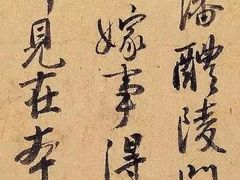 潘醴陵
嫁事得
見在